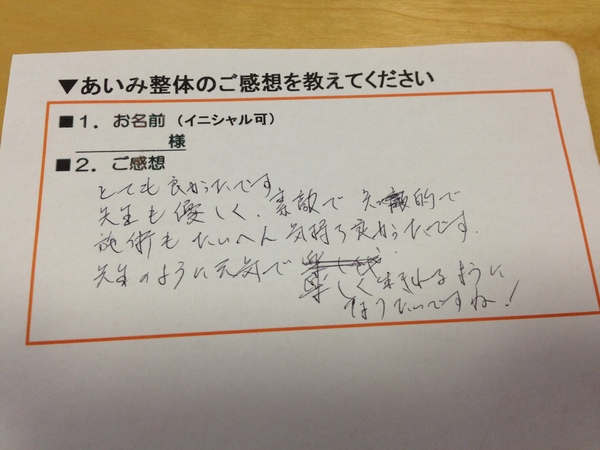 ▼あいみ整体のご感想を教えてください
■1．お名前（イニシャル可）
様
■2．ご感想
とても良かったです
先生も優しく、素敵で 知的で
施術もたいへん気持ち良かったです。
先生のように元気で
楽しく生きれるように
なりたいですね！